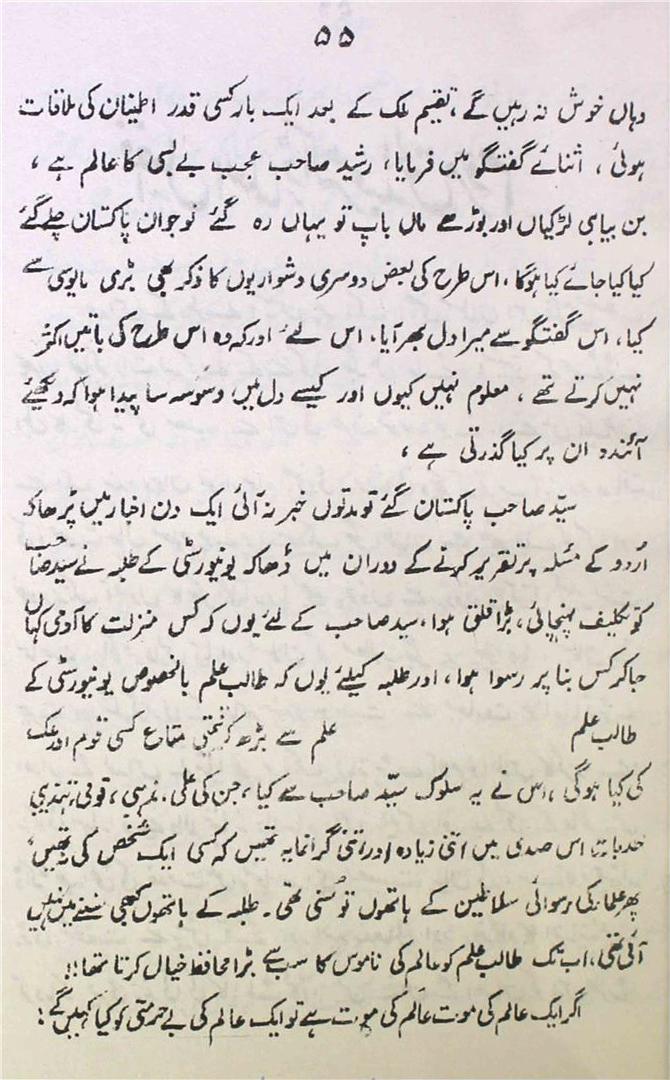 ۵۵
وہاں خوش نہ رہیں گے، تقسیم ملک کے بعد ایک بار کسی قدر اطینان کی ملاقات
ہوئی، اثنائے گفتگو میں فرمایا، رشید صاحب عجیب بے بسی کا عالم ہے،
بن بیاہی لڑکیاں اور بوڑھے ماں باپ تو یہاں رہ گئے نوجوان پاکستان چلے گئے
کیا کیا جائے کیا ہوگا، اس طرح کی بعض دوسری دشواریوں کا ذکر بھی بڑی مایوسی سے
کیا، اس گفتگو سے میرا دل بھر آیا، اس لئے اور کہ وہ اس طرح کی باتیں اکثر
نہیں کرتے تھے، معلوم نہیں کیوں اور کیسے دل میں وسوسہ سا پیدا ہوا کہ دیکھئے
آئندہ ان پر کیا گذرتی ہے،
سیّد صاحب پاکستان گئے تو مدتوں خبر نہ آئی ایک دن اخبار میں پڑھا کہ
اُردو کے مسئلہ پر تقریر کرنے کے دوران میں ڈھاکہ یونیورسٹی کے طلبہ نے سید صاحب
کو تکلیف پہنچائی، بڑا قلق ہوا، سید صاحب کے لئے یوں کہ کس منزلت کا آدمی کہاں
جا کر کس بنا پر رسوا ہوا، اور طلبہ کیلئے یوں کہ طالب علم بالخصوص یونیورسٹی کے
طالب علم علم سے بڑھ کر قیمتی متاع کسی قوم اور ملک
کی کیا ہوگی، اس نے یہ سلوک سیّد صاحب سے کیا، جن کی علمی، مذہبی، قومی، تہذیبی
خدمات اس صدی میں اتنی زیادہ اور اتنی گرانمایہ تھیں کہ کسی ایک شخص کی نہ تھیں،
پھر علماء کی رسوائی سلاطین کے ہاتھوں تو سُنی تھی۔ طلبہ کے ہاتھوں کبھی سننے میں نہیں
آئی تھی، اب تک طالب علم کو عالم کی ناموس کا سب سے بڑا محافظ خیال کرتا تھا!!
اگر ایک عالم کی موت عالَم کی موت ہے تو ایک عالم کی بے حرمتی کو کیا کہیں گے؛